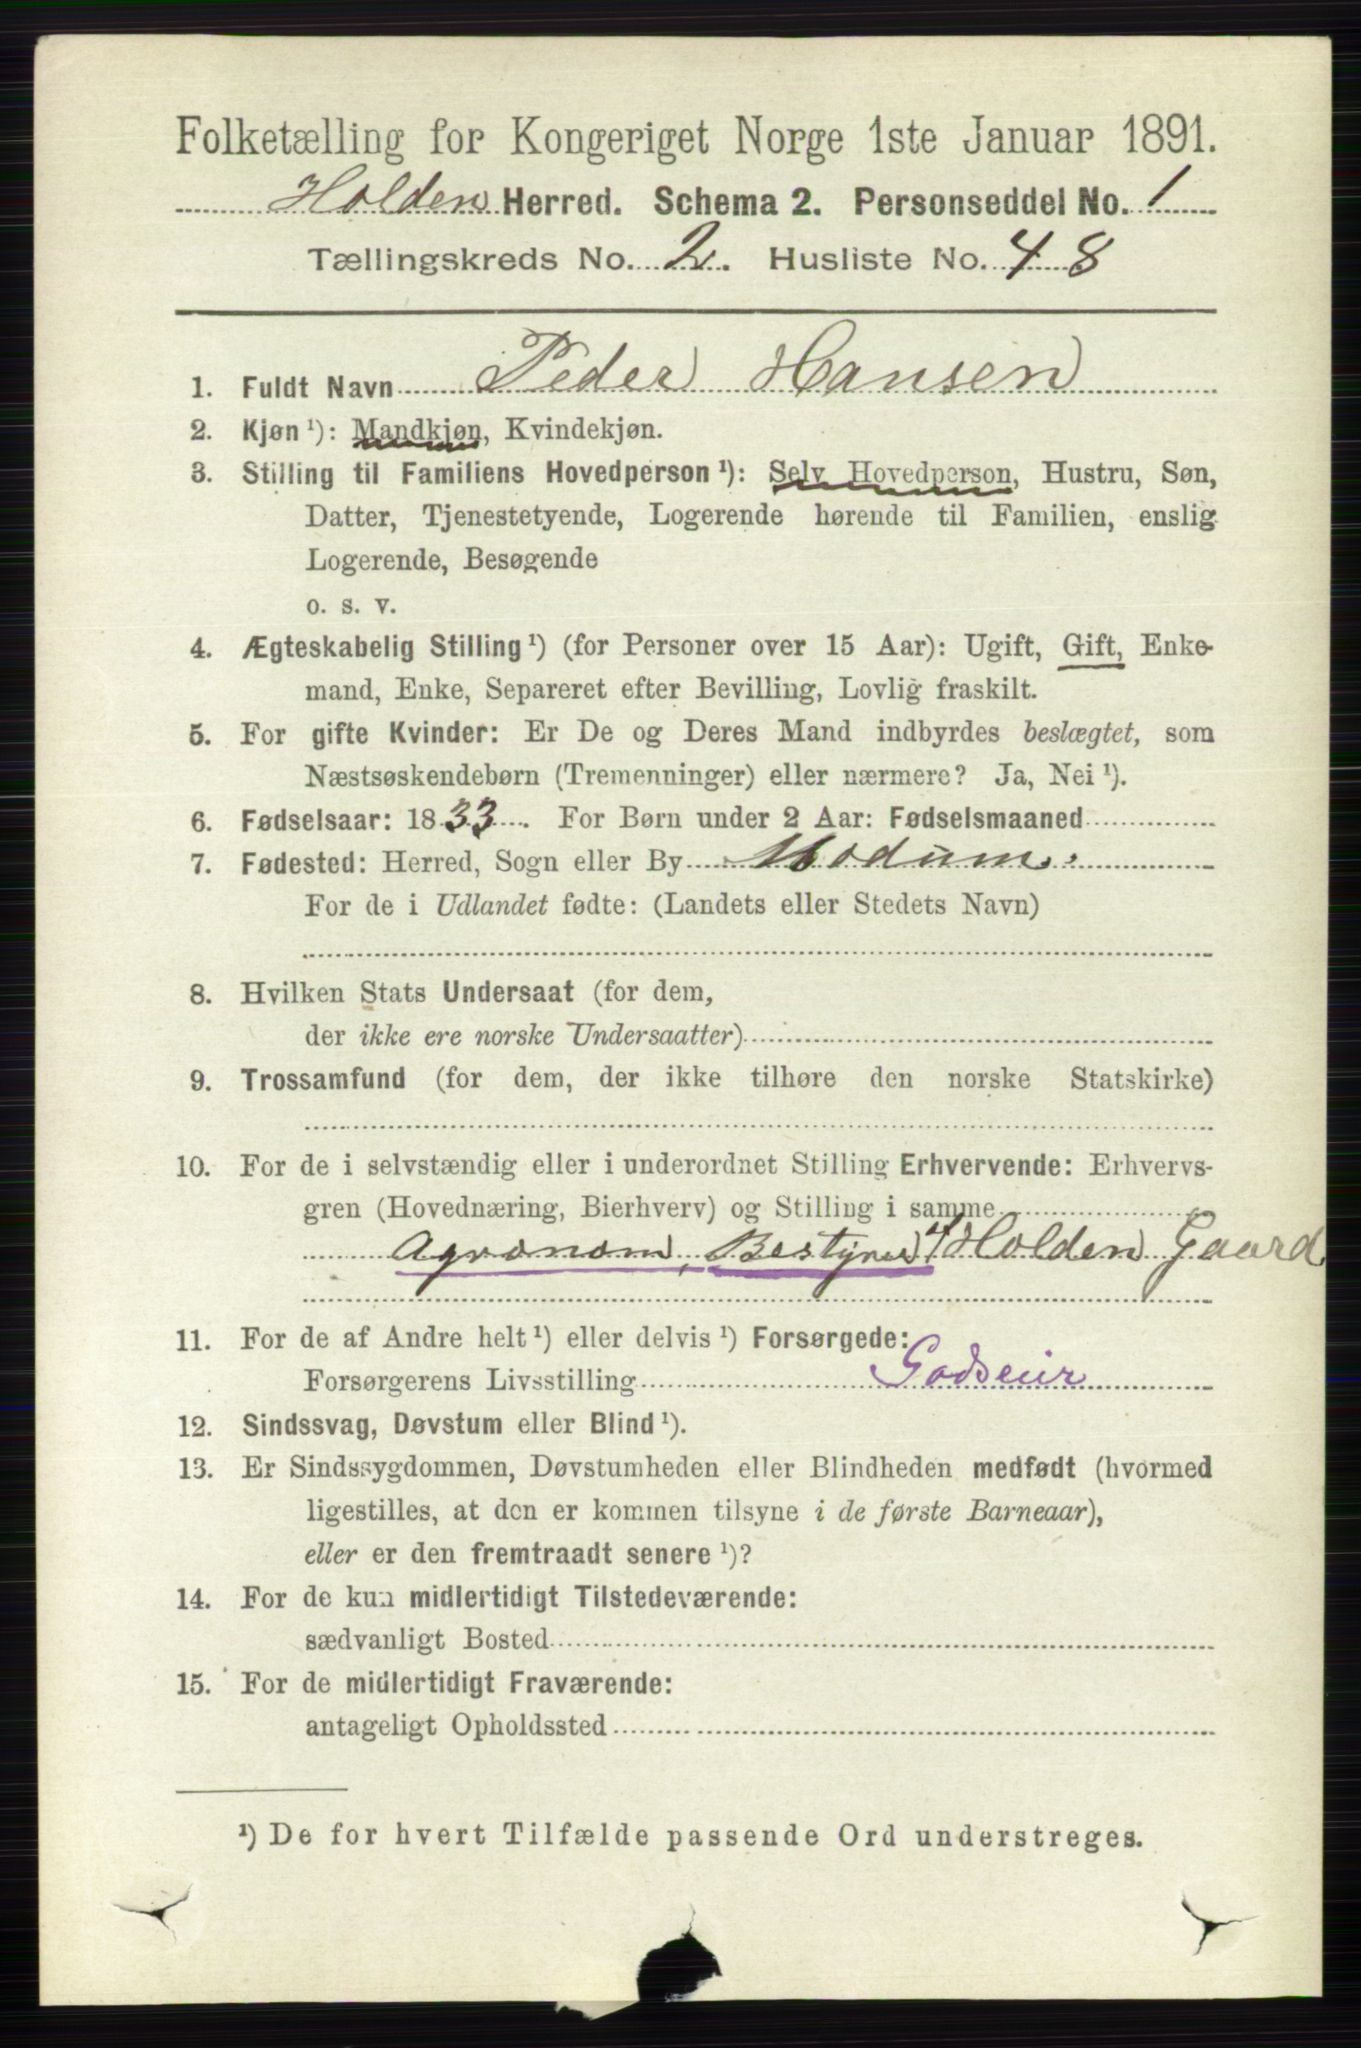 Folketælling for Kongeriget Norge 1ste Januar 1891.
Holden Herred. Schema 2. Personseddel No. 1
Tællingskreds No. 2. Husliste No. 48
1. Fuldt Navn Peder Hansen
2. Kjøn ¹): Mandkjøn, Kvindekjøn.
3. Stilling til Familiens Hovedperson ¹): Selv Hovedperson, Hustru, Søn,
Datter, Tjenestetyende, Logerende hørende til Familien, enslig
Logerende, Besøgende
o. s. v.
4. Ægteskabelig Stilling ¹) (for Personer over 15 Aar): Ugift, Gift, Enke-
mand, Enke, Separeret efter Bevilling, Lovlig fraskilt.
5. For gifte Kvinder: Er De og Deres Mand indbyrdes beslægtet, som
Næstsøskendebørn (Tremenninger) eller nærmere? Ja, Nei ¹).
6. Fødselsaar: 1833. For Børn under 2 Aar: Fødselsmaaned
7. Fødested: Herred, Sogn eller By Modum.
For de i Udlandet fødte: (Landets eller Stedets Navn)
8. Hvilken Stats Undersaat (for dem,
der ikke ere norske Undersaatter)
9. Trossamfund (for dem, der ikke tilhøre den norske Statskirke)
10. For de i selvstændig eller i underordnet Stilling Erhvervende: Erhvervs-
gren (Hovednæring, Bierhverv) og Stilling i samme
Agronom, Bestyrer Holden Gaard
11. For de af Andre helt ¹) eller delvis ¹) Forsørgede:
Forsørgerens Livsstilling
12. Sindssvag, Døvstum eller Blind ¹).
13. Er Sindssygdommen, Døvstumheden eller Blindheden medfødt (hvormed
ligestilles, at den er kommen tilsyne i de første Barneaar),
eller er den fremtraadt senere ¹)?
14. For de kun midlertidigt Tilstedeværende:
sædvanligt Bosted
15. For de midlertidigt Fraværende:
antageligt Opholdssted
¹) De for hvert Tilfælde passende Ord understreges.